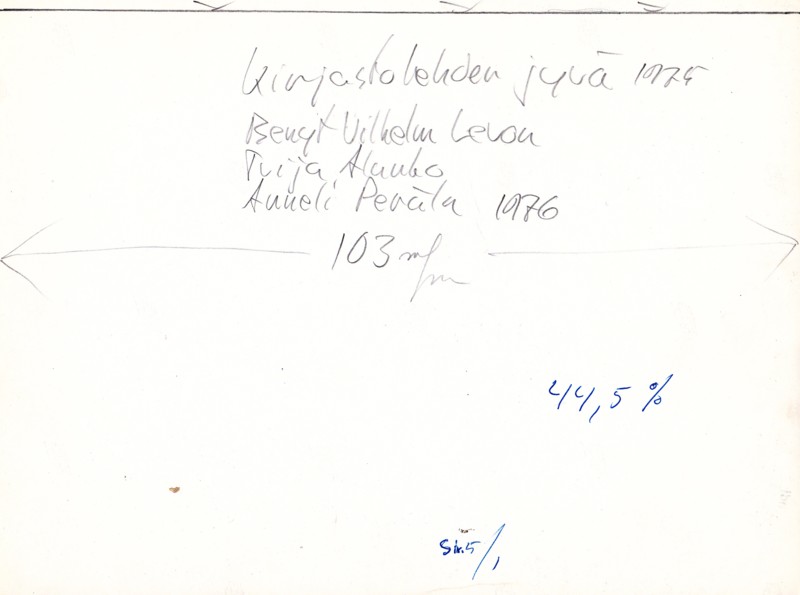 Kirjastolehden jyvä 1975
Bengt Vilhelm Levon
Irija Alanko
Anneli Perälä 1976
103 m/m
44,5 %
Siv. 5/1